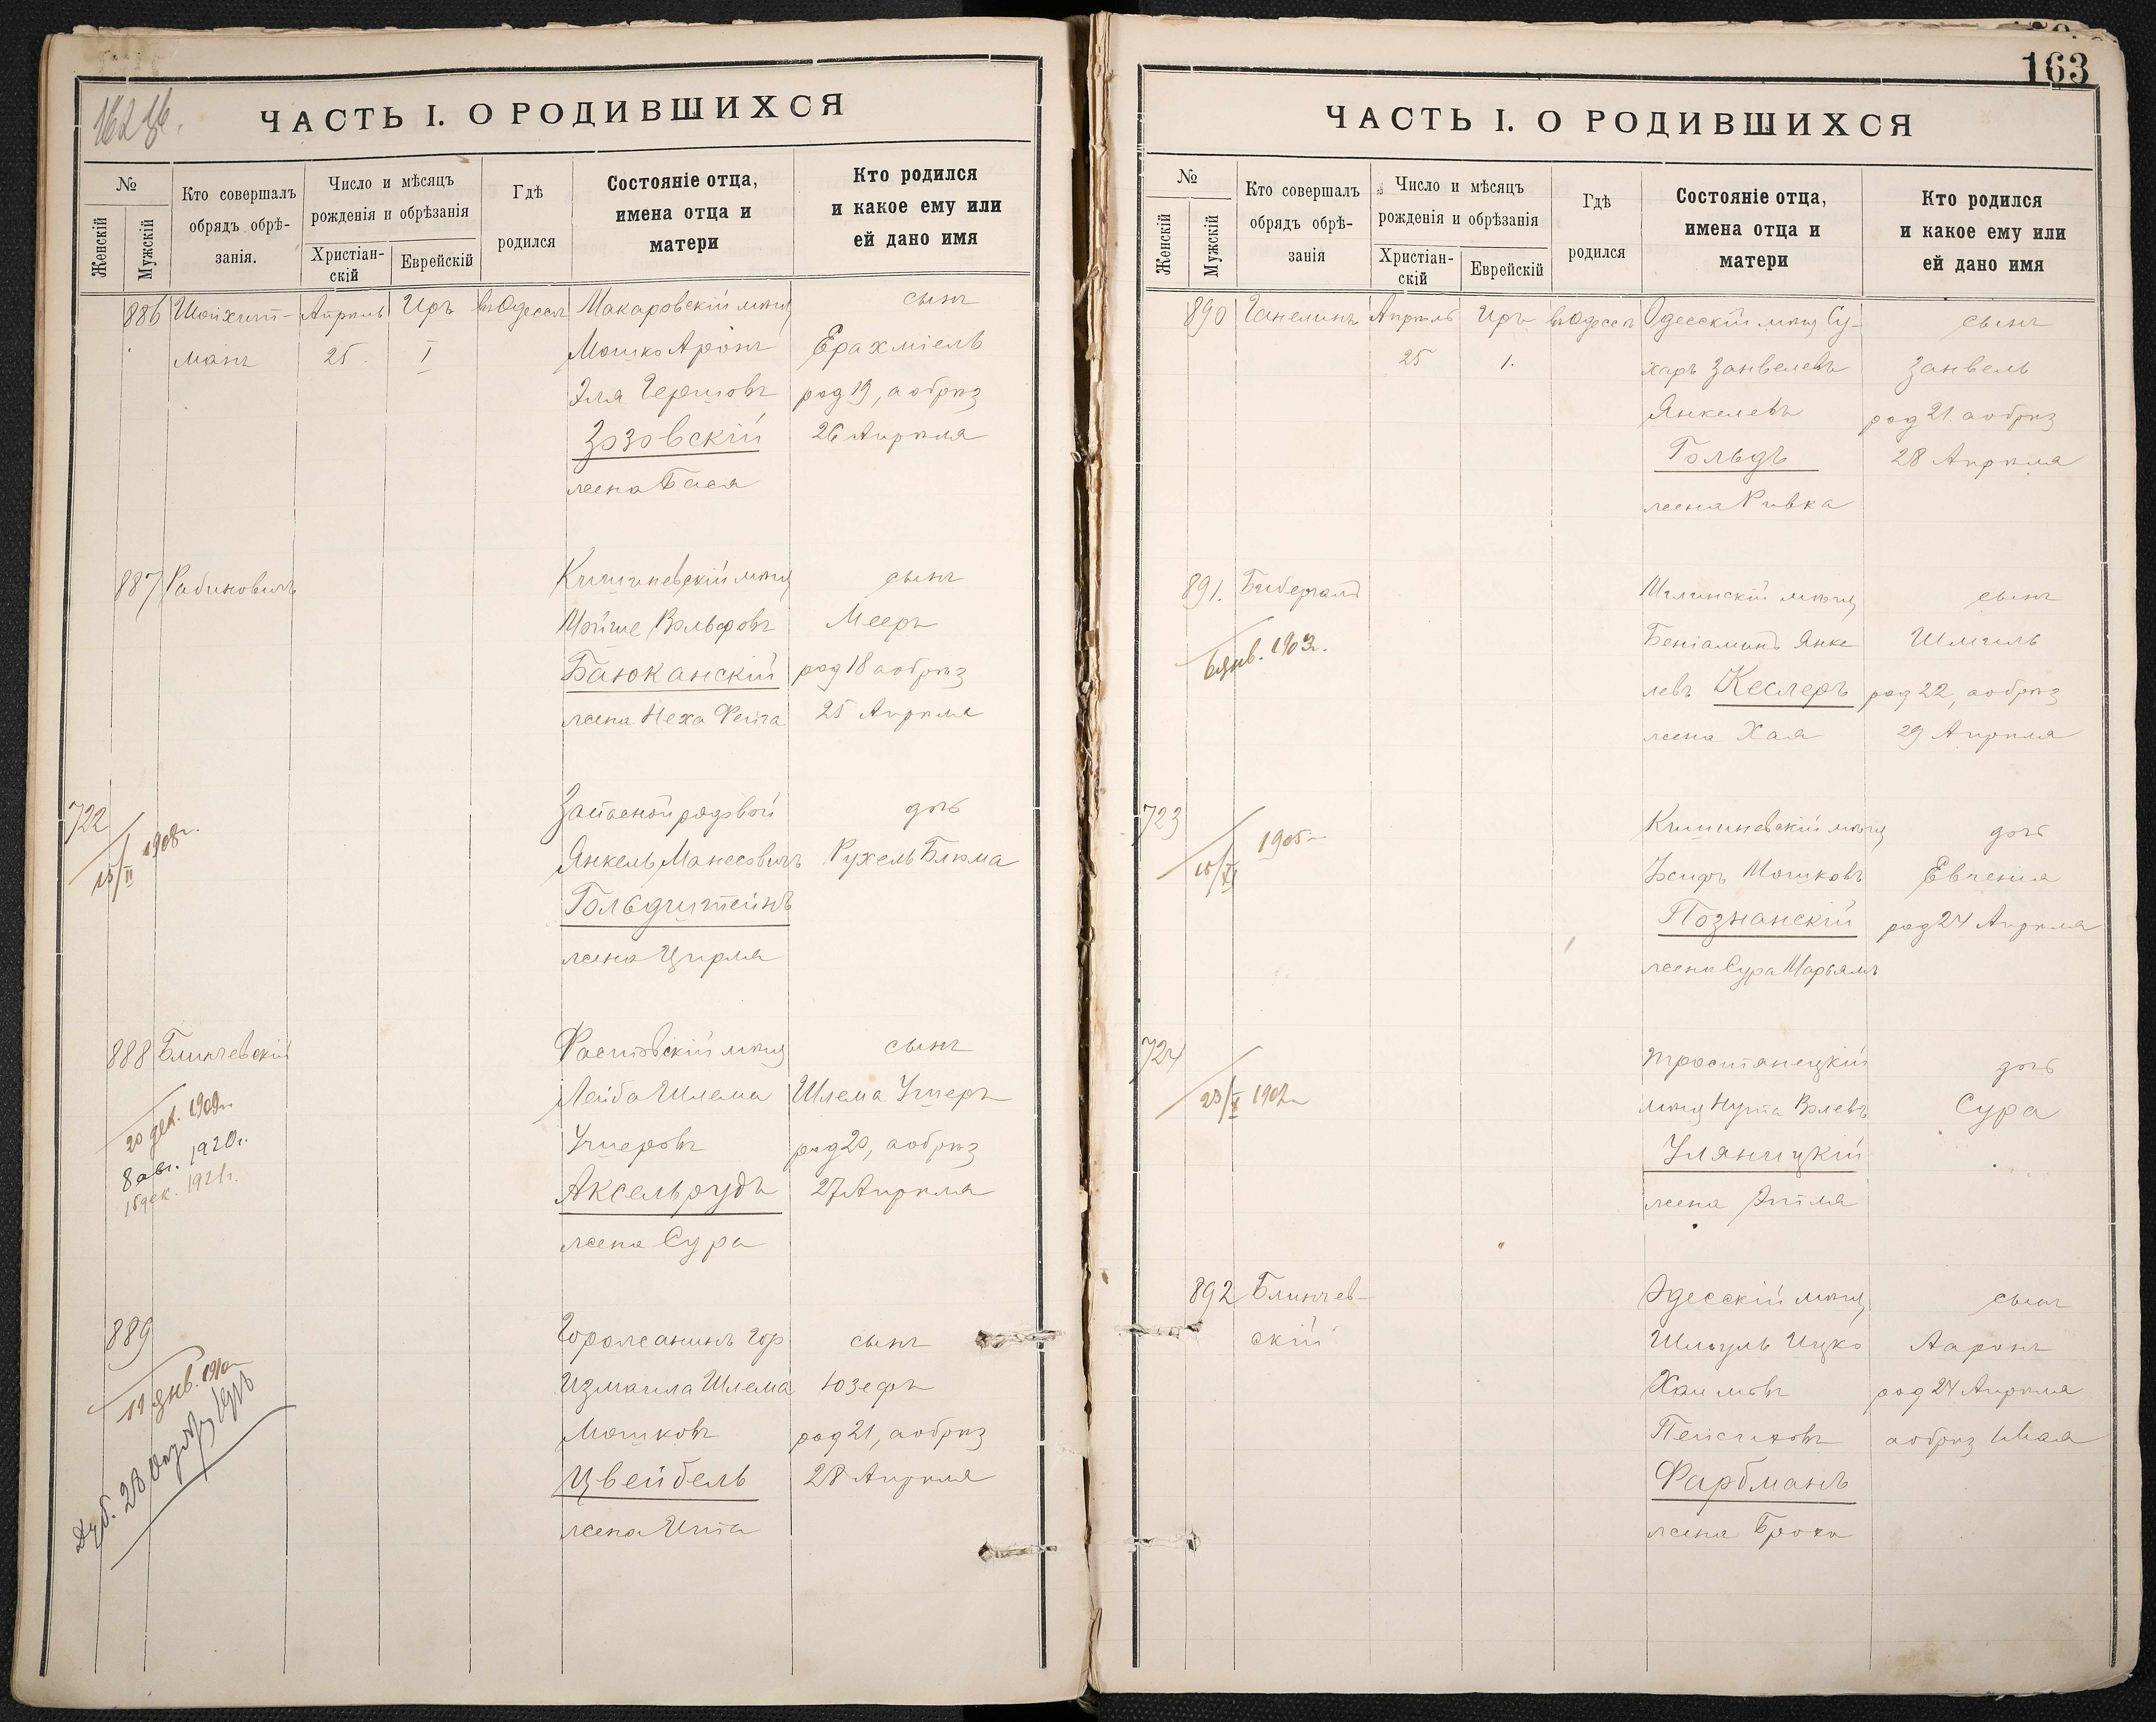 162 об.
ЧАСТЬ I. О РОДИВШИХСЯ
№
Женскій
Мужскій
Кто совершалъ
обрядъ обрѣ-
занія.
Число и мѣсяцъ
рожденія и обрѣзанія
Христіан-
скій
Еврейскій
Гдѣ
родился
Состояніе отца,
имена отца и
матери
Кто родился
и какое ему или
ей дано имя
886
Шойхит-
манъ
Апрѣль
25
Иръ
1
въ Одессѣ
Макаровскій мѣщ
Мошко Аронъ
Эля Гершовъ
Зозовскій
жена Бася
сынъ
Ерахміель
род 19, а обрѣз
26 Апрѣля
887
Рабиновичъ
Кишиневскій мѣщ
Мойше Вольфовъ
Баюканскій
жена Неха Фейга
сынъ
Мееръ
род 18 а обрѣз
25 Апрѣля
722
15/II 1908г.
Запасной рядовой
Янкель Манесовичъ
Гольдштейнъ
жена Цирля
дочь
Рухель Блюма
888
Блинчевскій
20 дек. 1909г.
8 авг. 1920г.
16 дек. 1921г.
Фастовскій мѣщ
Лейба Шлема
Ушеровъ
Аксельрудъ
жена Сура
сынъ
Шлема Ушеръ
род 20, а обрѣз
27 Апрѣля
889
11 янв. 1910г
Горожанинъ гор
Измаила Шлема
Мошковъ
Цвейбель
жена Ита
сынъ
Юзефъ
род 21, а обрѣз
28 Апрѣля
163
ЧАСТЬ I. О РОДИВШИХСЯ
№
Женскій
Мужскій
Кто совершалъ
обрядъ обрѣ-
занія
Число и мѣсяцъ
рожденія и обрѣзанія
Христіан-
скій
Еврейскій
Гдѣ
родился
Состояніе отца,
имена отца и
матери
Кто родился
и какое ему или
ей дано имя
890
Ганелинъ
Апрѣль
25
Иръ
1.
въ Одессѣ
Одесскій мѣщ Су-
харъ Занвелевъ
Янкелевъ
Гольдъ
жена Ривка
сынъ
Занвель
род 21 а обрѣз
28 Апрѣля
891.
Бибергалъ
6 янв. 1903г.
мѣщ
Беніаминъ Янке
левъ Кеслеръ
жена Хая
сынъ
Шмиль
род 22, а обрѣз
29 Апрѣля
723
1905г
Кишиневскій мѣщ
Іосифъ Мошковъ
Познанскій
жена Сура Марьямъ
дочь
Евгенія
род 24 Апрѣля
724
23/X 1902г
Тростянецкій
мѣщ Нута Волевъ
Уляницкій
жена Этля
дочь
Сура
892
Блинчев-
скій
Одесскій мѣщ
Шмуль Ицко
Хаимовъ
Пейсиховъ
Фарбманъ
жена Броха
сынъ
Ааронъ
род 24 Апрѣля
а обрѣз 1 Мая